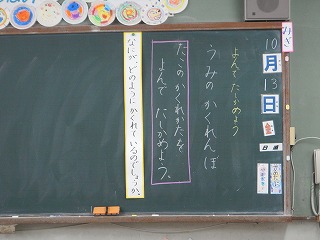 みぎ
10
月
13
日
金
日直
よんで たしかめよう
うみの かくれんぼ
たこの かくれかたを
よんで たしかめよう。
なにが、どのように かくれて いるのでしょうか。